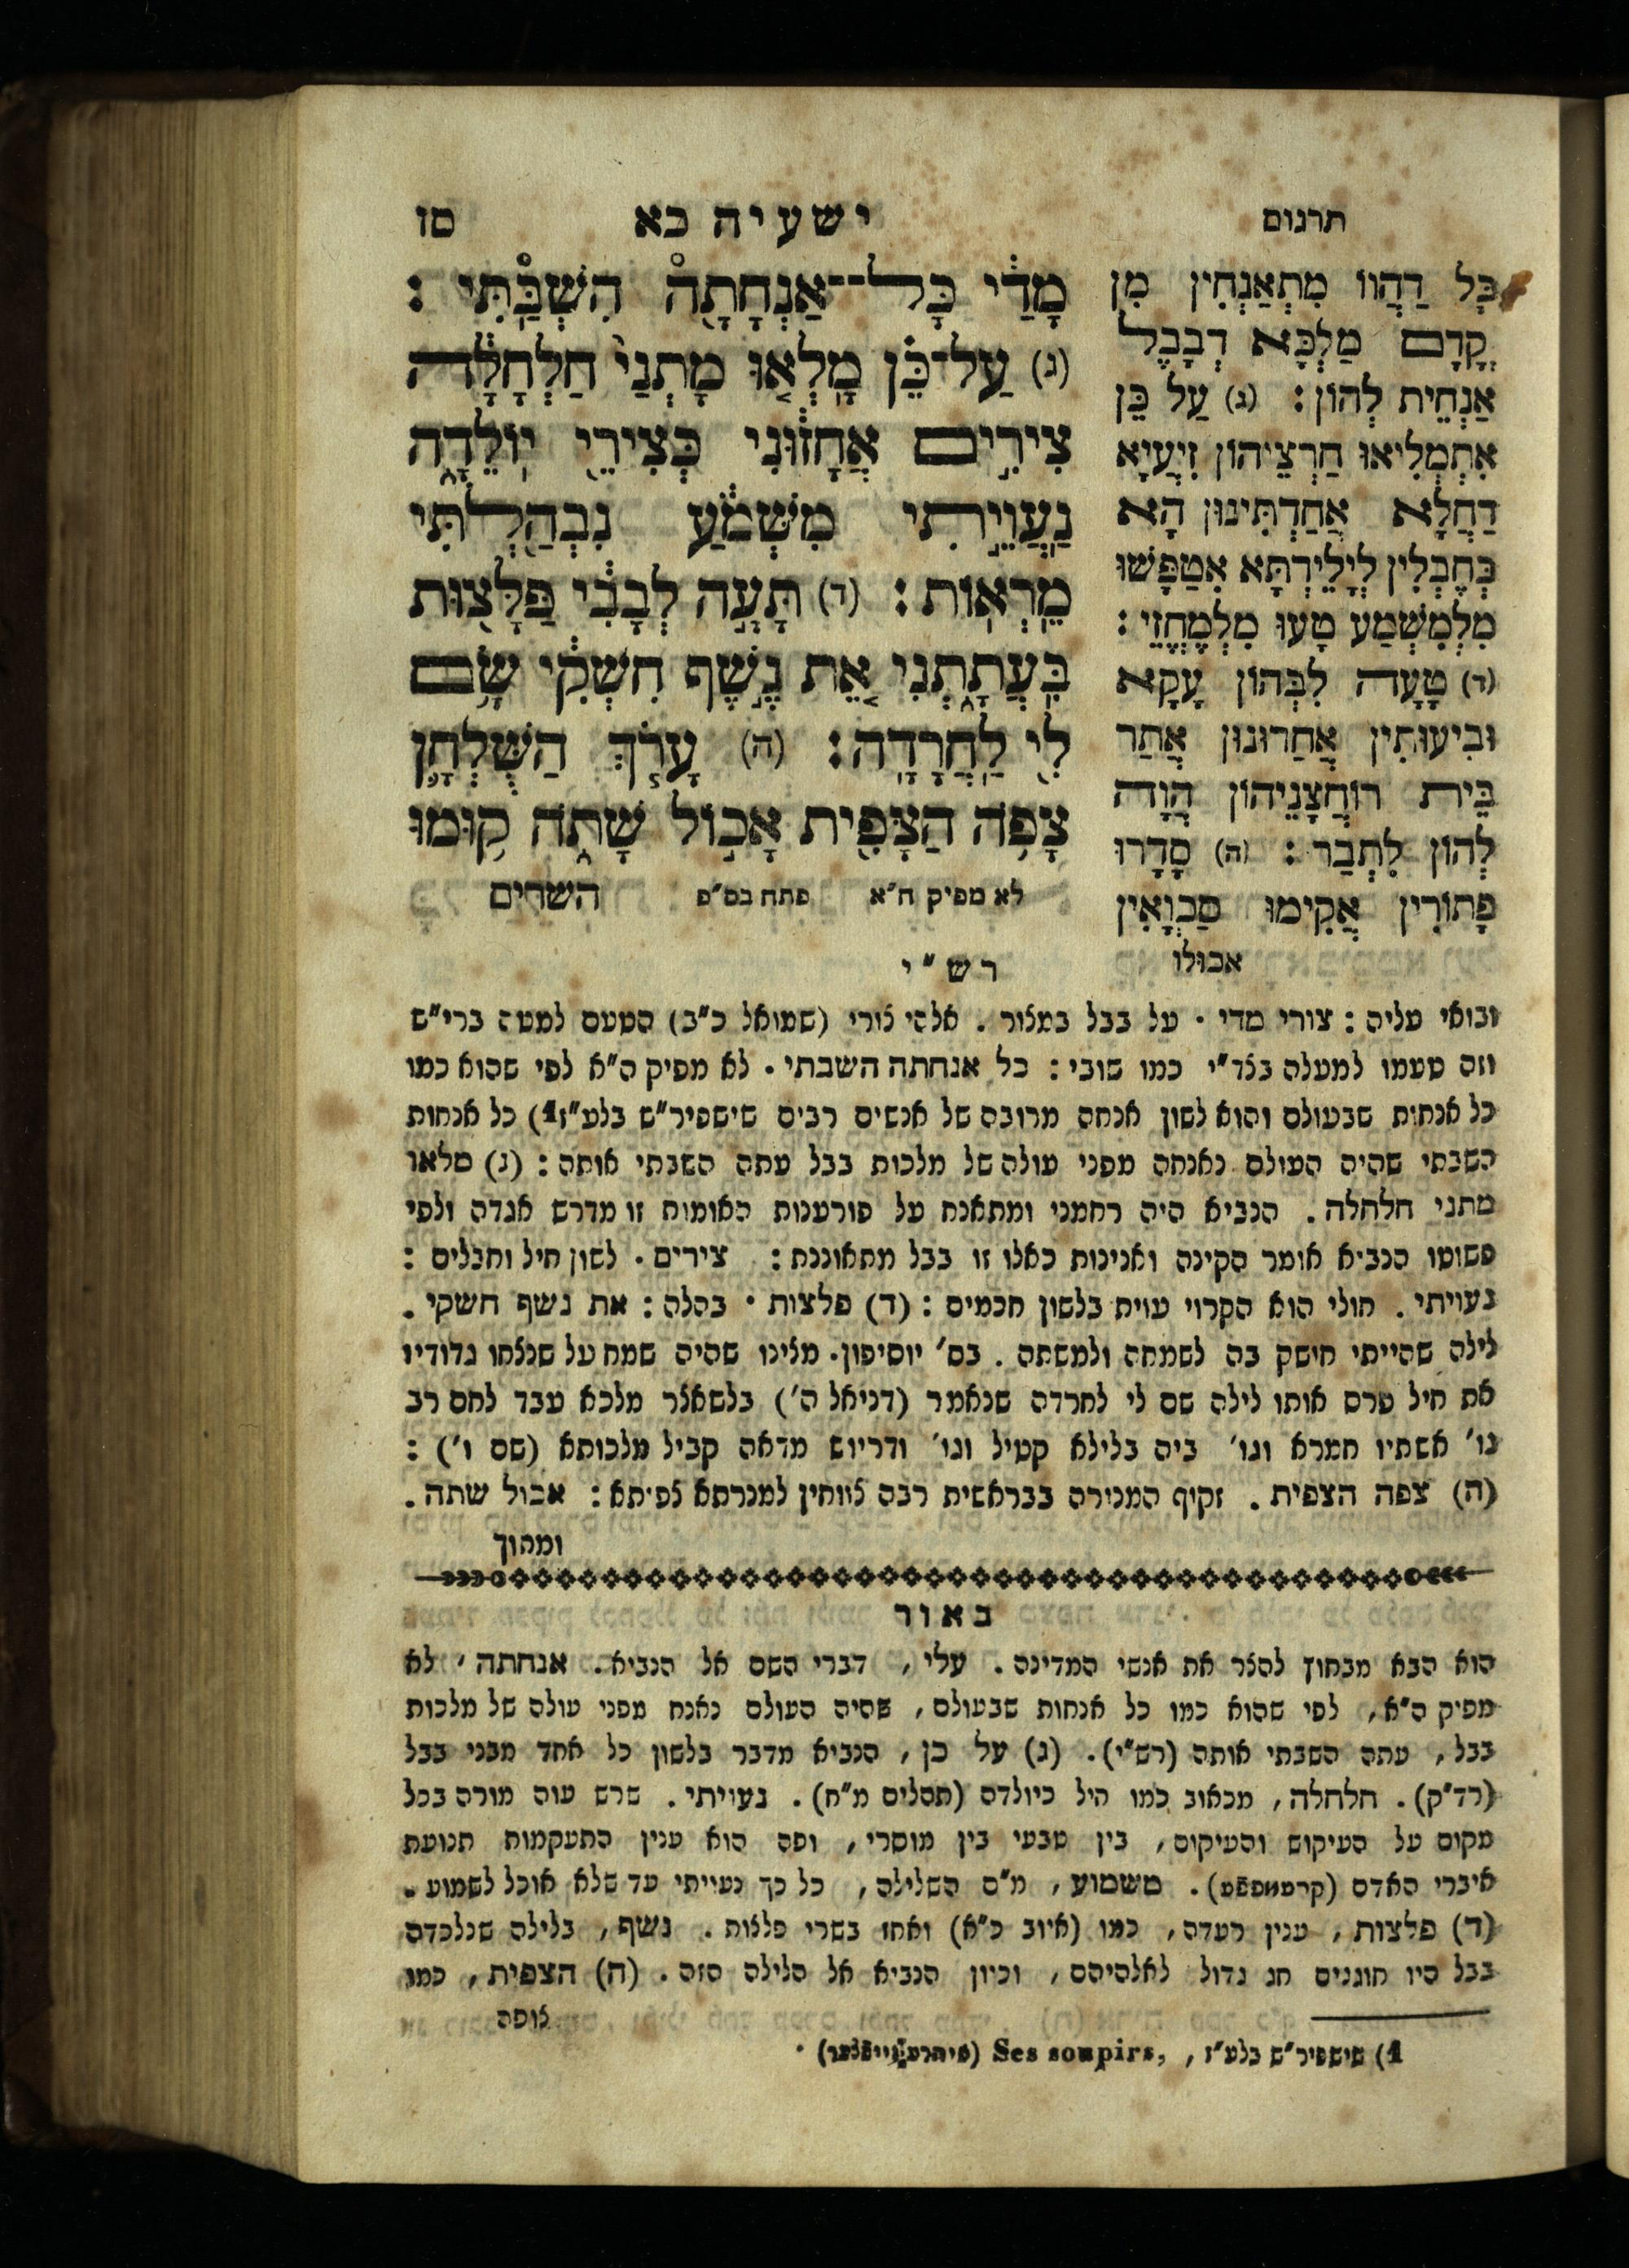 תרגום
ישעיה כא
סז
מָדַ֔י כׇּל־־אַנְחָתָ֖ה הִשְׁבַּֽתִּי :
(ג) עַל־כֵּ֗ן מָלְא֤וּ מׇתְנַי֙ חַלְחָלָ֔ה
צִירִ֣ים אֲחָז֔וּנִי כְּצִירֵ֖י יֽוֹלֵדָ֑ה
נַעֲוֵ֣יתִי מִשְּׁמֹ֔עַ נִבְהַ֖לְתִּי
מֵרְאֽוֹת : (ד) תָּעָ֣ה לְבָבִ֔י פַּלָּצ֖וּת
בִּֽעֲתָ֑תְנִי אֵ֚ת נֶ֣שֶׁף חִשְׁקִ֔י שָׂ֥ם
לִ֖י לַֽחֲרָדָֽה : (ה) עָרֹ֧ךְ הַשֻּׁלְחָ֛ן
צָפֹ֥ה הַצָּפִ֖ית אָכ֣וֹל שָׁתֹ֑ה ק֥וּמוּ
לא מפיק ה״א פתח בס״פ השרים
כָּל דַהֲווֹ מִתְאַנְחִין מִן
קֳדָם מַלְכָּא דְבָבֶל
אַנְחֵית לְהוֹן : (ג) עַל כֵּן
אִתְמְלִיאוּ חַרְצֵיהוֹן זִיעֲיָא
דַחֲלָא אֲחַדְתִּינוּן הָא
כְּחֶבְלִין לְיָלֵידְתָּא אִטַפָּשׁוּ
מִלְמִשְׁמַע טָעוּ מִלְמֶחֱזֵי :
(ד) טָעָה לִבְּהוֹן עָקָא
וּבִיעוּתִין אֲחַרוּנוּן אֲתַר
בֵּית רוֹחֲצָנֵיהוֹן הֲוָה
לְהוֹן לִתְבַר : (ה) סַדָרוּ
פָּתוֹרִין אֲקִימוּ סַכְוָאִין
אכולו
רש״י
ובואי עליה : צורי מדי . על בבל במצור . אלהי צורי (שמואל כ״ב) הטעם למטה ברי״ש
וזה טעמו למעלה בצד״י כמו שובי : כל אנחתה השבתי . לא מפיק ה״א לפי שהוא כמו
כל אנחות שבעולם והוא לשון אנחה מרובה של אנשים רבים שישפיר״ש בלע״ז1) כל אנחות
השבתי שהיה העולם נאנחה מפני עולה של מלכות בבל עתה השבתי אותה : (ג) מלאו
מתני חלחלה . הנביא היה רחמני ומתאנח על פורענות האומות זו מדרש אגדה ולפי
פשוטו הנביא אומר הקינה ואנינות כאלו זו בבל מתאוננת : צירים . לשון חיל וחבלים :
נעויתי . חולי הוא הקרוי עוית בלשון חכמים : (ד) פלצות . בהלה : את נשף חשקי .
לילה שהייתי חושק בה לשמחה ולמשתה . בס׳ יוסיפון . מצינו שהיה שמח על שנצחו גדודיו
את חיל פרס אותו לילה שם לי לחרדה שנאמר (דניאל ה׳) בלשאצר מלכא עבד לחם רב
גו׳ אשתיו חמרא וגו׳ ביה בלילא קטיל וגו׳ ודריוש מדאה קביל מלכותא (שם ו׳) :
(ה) צפה הצפית . זקוף המנורה בבראשית רבה צווחין למנרתא צפיתא : אכול שתה .
ומתוך
באור
הוא הבא מבחוץ להצר את אנשי המדינה . עלי , דברי השם אל הנביא . אנחתה , לא
מפיק ה״א , לפי שהוא כמו כל אנחות שבעולם , שהיה העולם נאנח מפני עולה של מלכות
בבל , עתה השבתי אותה (רש״י) . (ג) על כן , הנביא מדבר בלשון כל אחד מבני בבל
(רד״ק) . חלחלה , מכאוב כמו חיל כיולדה (תהלים מ״ח) . נעויתי . שרש עוה מורה בכל
מקום על העיקוש והעיקום , בין טבעי בין מוסרי , ופה הוא ענין התעקמות תנועת
איברי האדם . משמוע , מ״ם השלילה , כל כך נעויתי עד שלא אוכל לשמוע .
(ד) פלצות , ענין רעדה , כמו (איוב כ״א) ואחז בשרי פלצות . נשף , בלילה שנלכדה
בבל היו חוגגים חג גדול לאלהיהם , וכיון הנביא אל הלילה הזה . (ה) הצפית , כמו
צופה
1) שישפיר״ש בלע״ז , Ses soupirs,